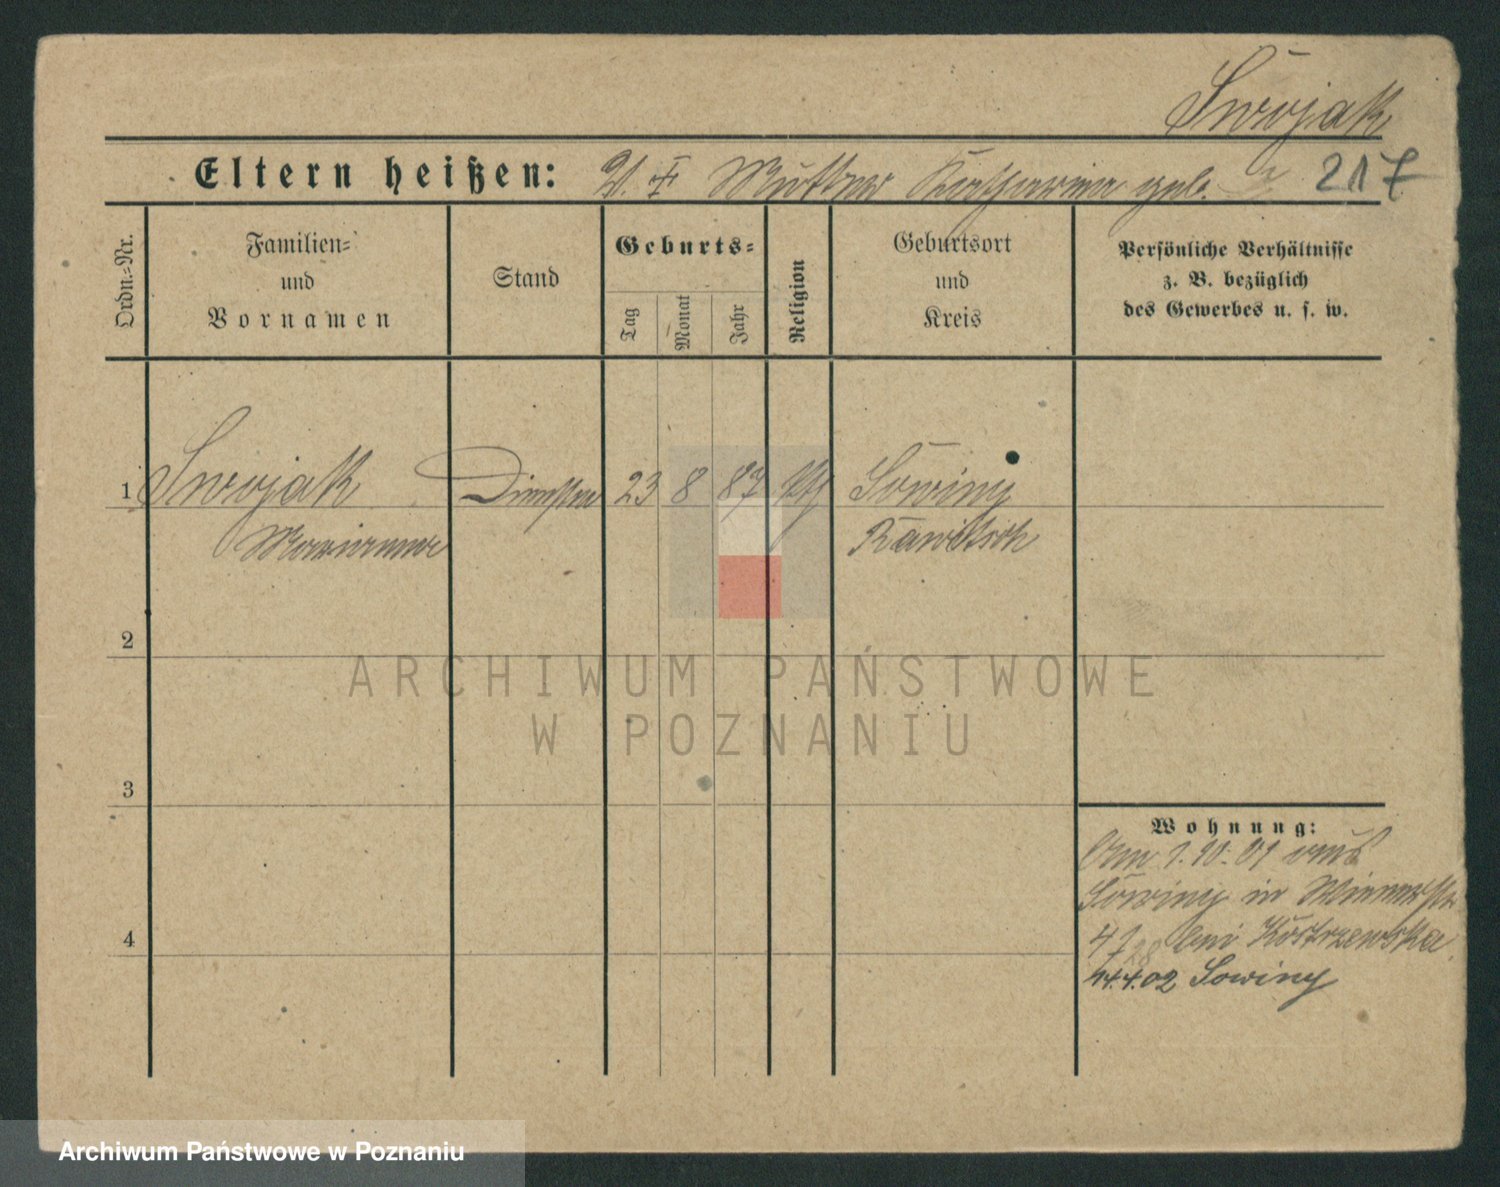 Swojak
Eltern heißen: V. † Mutter Katharina geb. ? 217
Ordn.-Nr.
Familien-
und
Vornamen
Stand
Geburts-
Tag
Monat
Jahr
Religion
Geburtsort
und
Kreis
Persönliche Verhältnisse
z. B. bezüglich
des Gewerbes u. s. w.
1 Swojak 23 8 87 Sowiny
Marianna Rawitsch
2
ARCHIWUM PAŃSTWOWE
W POZNANIU
3
Wohnung:
Am 1.10.01 aus
Sowiny in Wienerstr
bei Kostrzewska
4
4.4.02 Sowiny
Archiwum Państwowe w Poznaniu